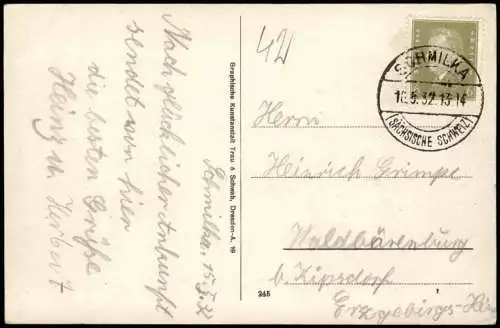 Schmilka, 15.5.32
Nach glücklicher Ankunft
sendet von hier
die besten Grüße
Heinz u. Herbert
Graphische Kunstanstalt Trau & Schwab, Dresden-A. 16
42
SCHMILKA
16.5.32.13-14
(SÄCHSISCHE SCHWEIZ)
Herrn
Heinrich Grimpe
Waldbärenburg
b. Kipsdorf
Erzgebirge
245